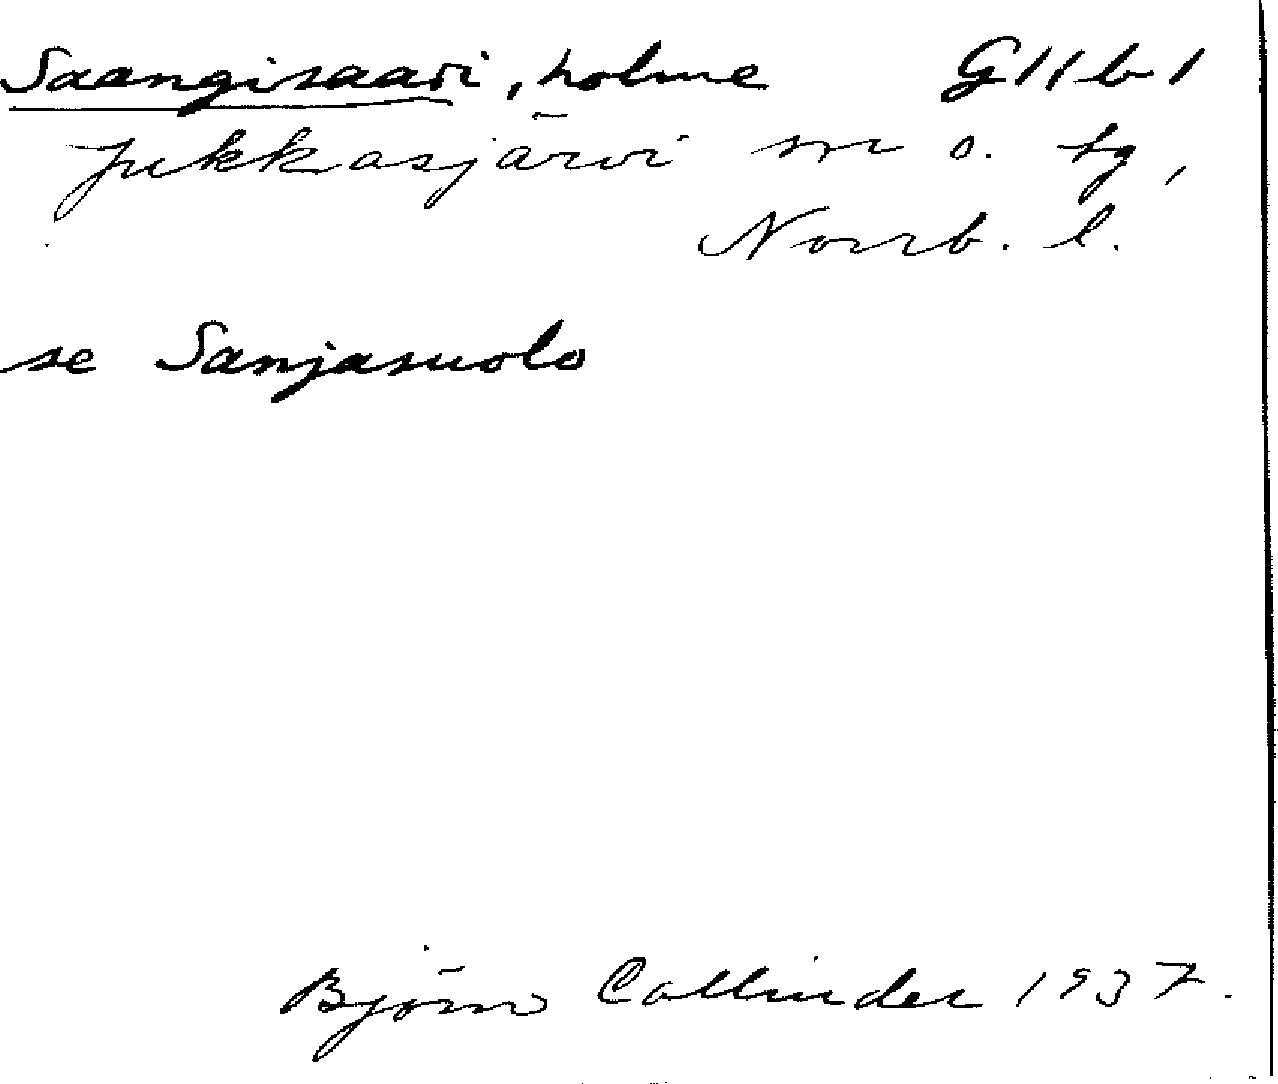 Saangisaari, holme G11b1
Jukkasjärvi sn o. tg,
Norrb. l.
se Sanjasuolo
Björn Collinder 1937.